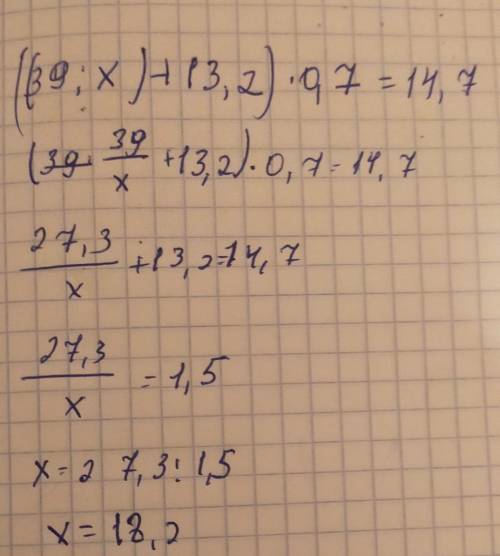 ((39 : x) + 13,2) · 0,7 = 14,7
(39/x + 13,2) · 0,7 = 14,7
27,3/x + 13,2 = 14,7
27,3/x = 1,5
x = 27,3 : 1,5
x = 18,2